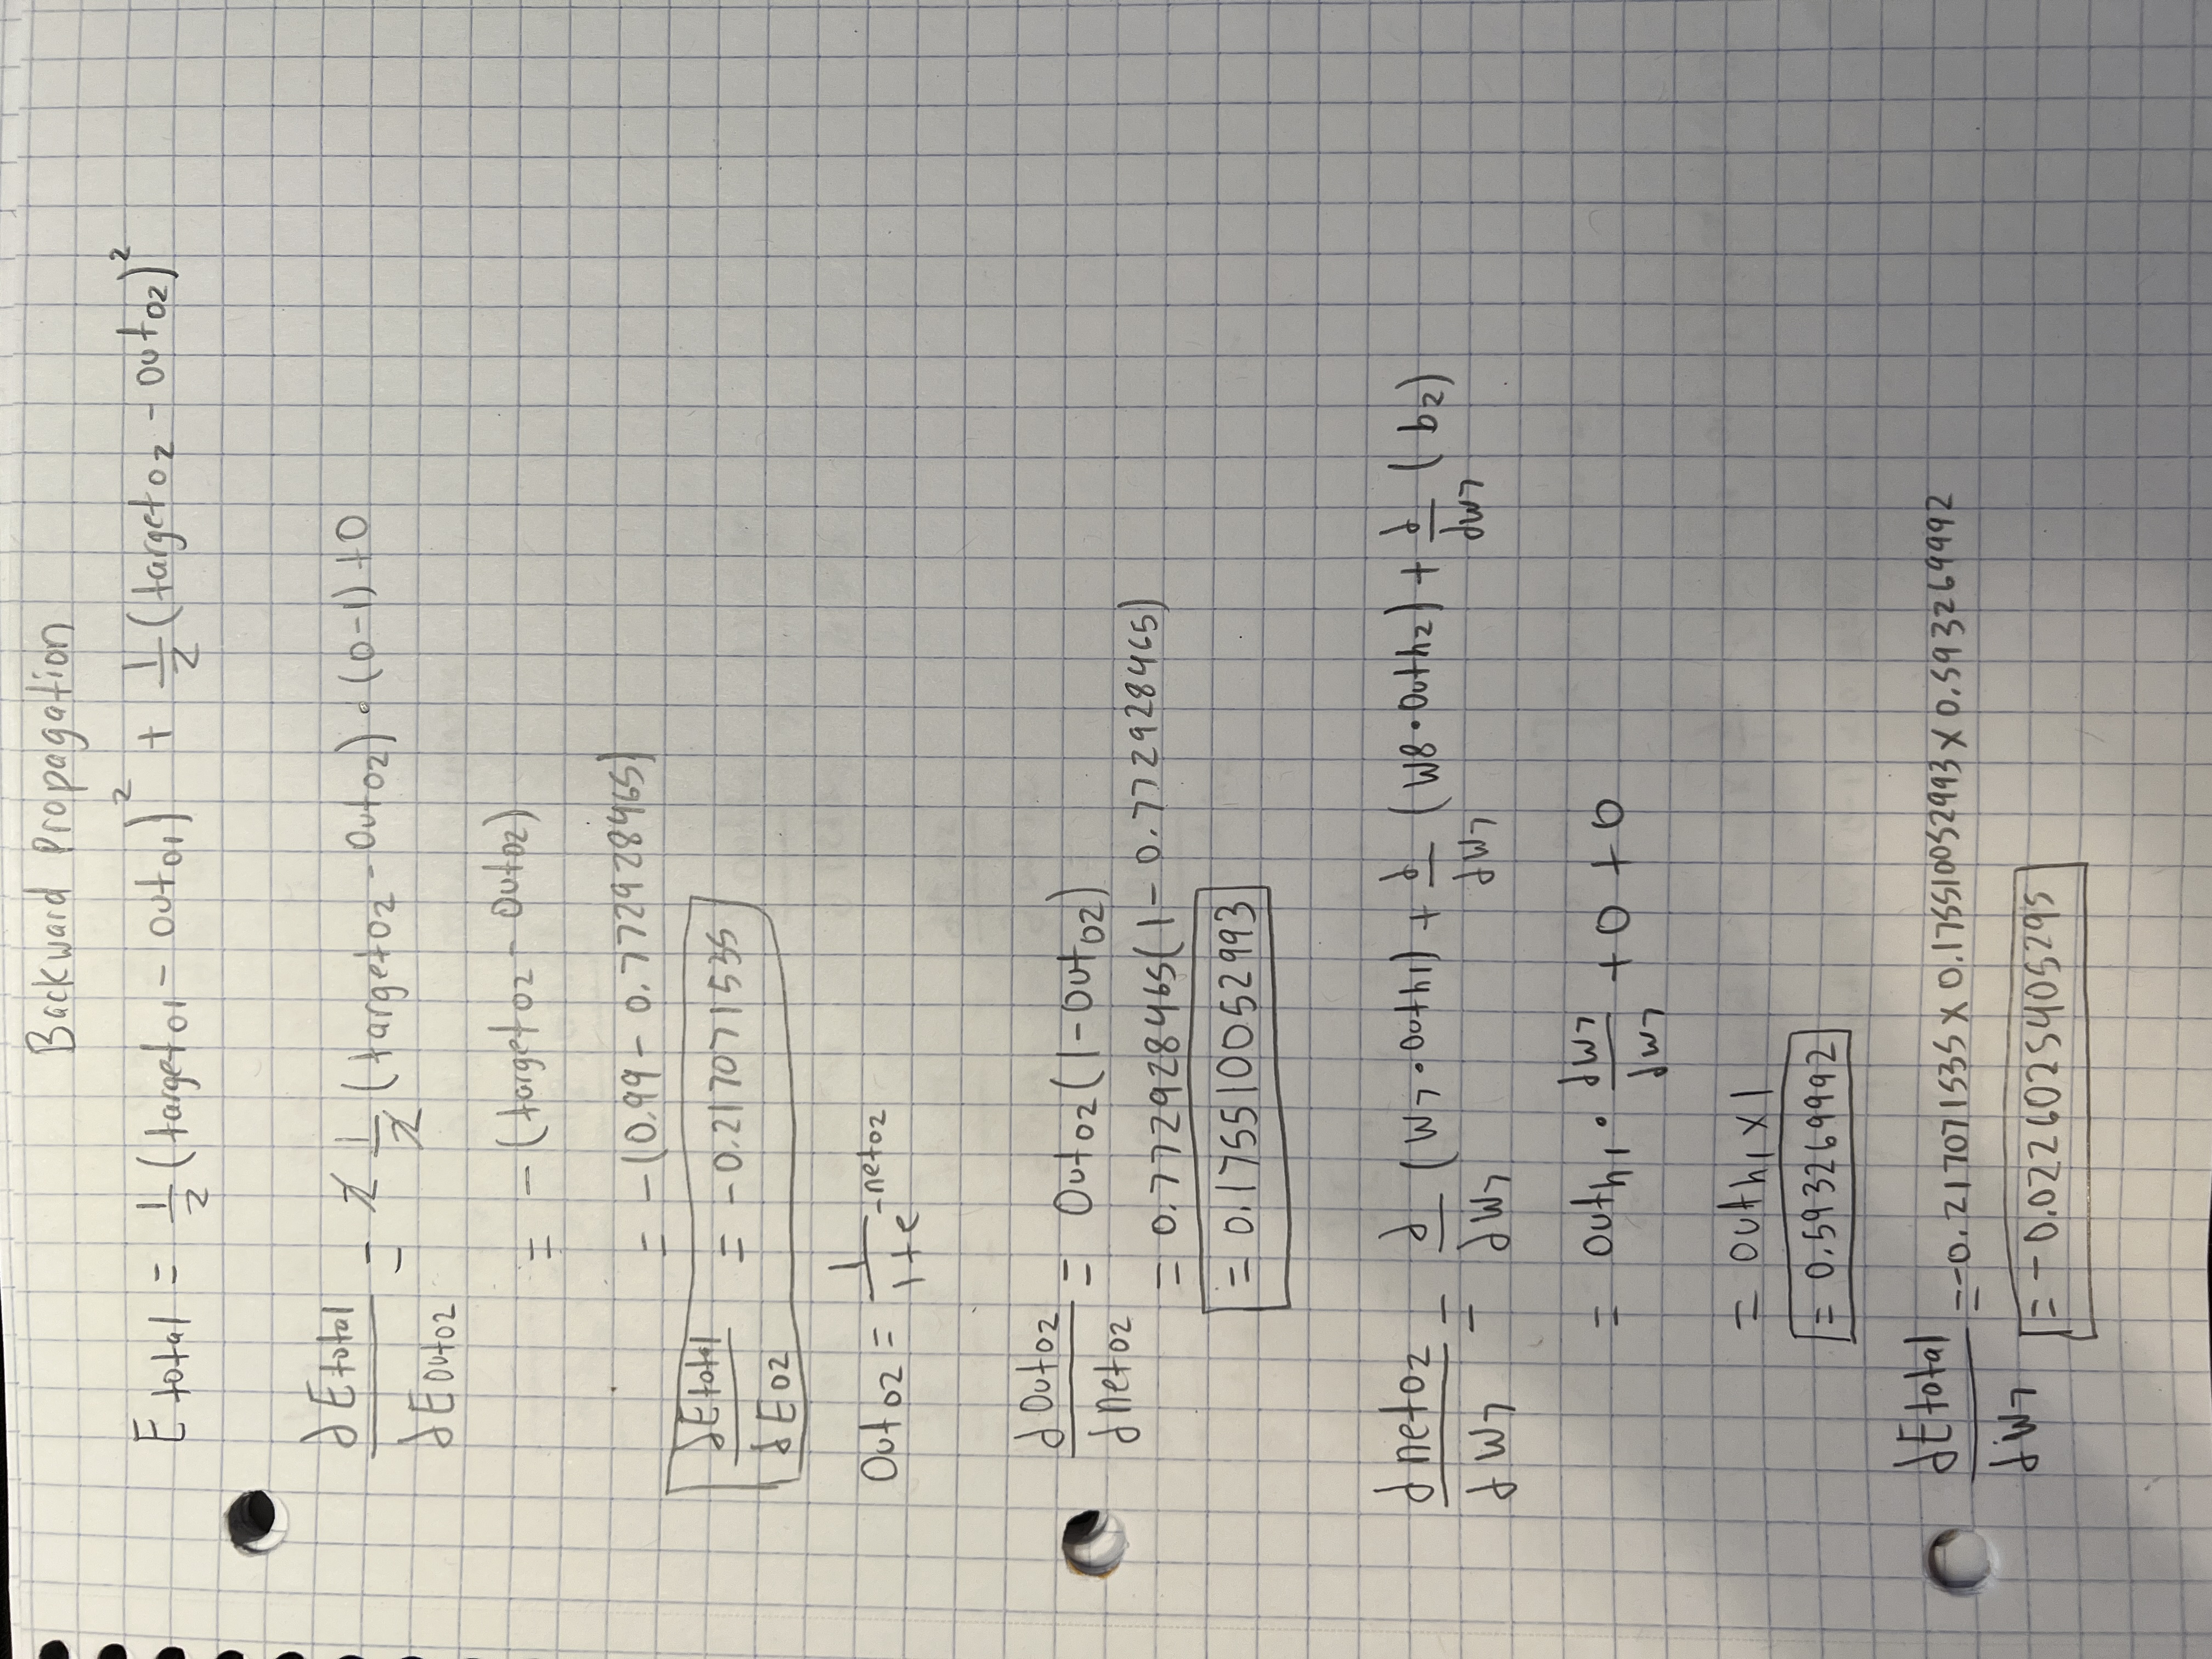 Backward Propagation
E total = 1/2 (target o1 - out o1)^2 + 1/2 (target o2 - out o2)^2
∂E total / ∂E out o2 = 2 1/2 (target o2 - Out o2) • (0-1) + 0
= - (target o2 - Out o2)
= - (0.99 - 0.772928465)
∂E total / ∂E o2 = -0.217071535
Out o2 = 1 / 1+e^-net o2
∂ Out o2 / ∂ net o2 = Out o2 (1 - Out o2)
= 0.772928465 (1 - 0.772928465)
= 0.175510052993
∂ net o2 / ∂ W7 = ∂/∂W7 (W7 • Out h1) + ∂/∂W7 (W8 • Out h2) + ∂/∂W7 (b2)
= Out h1 • ∂W7/∂W7 + 0 + 0
= Out h1 x 1
= 0.593269992
∂E total / ∂W7 = -0.217071535 x 0.175510052993 x 0.593269992
= -0.0226025405295